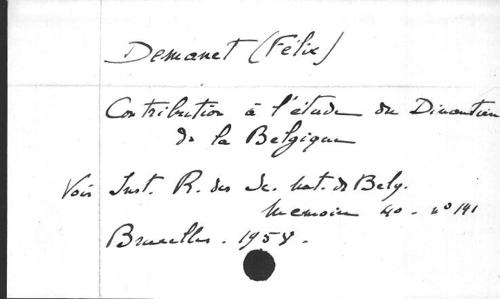 Demanet (Félix)
Contribution à l'étude du Dinantien
de la Belgique
Voir Inst. R. des Sc. nat. de Belg.
Memoire no. - n° 141
Bruxelles. 1958.